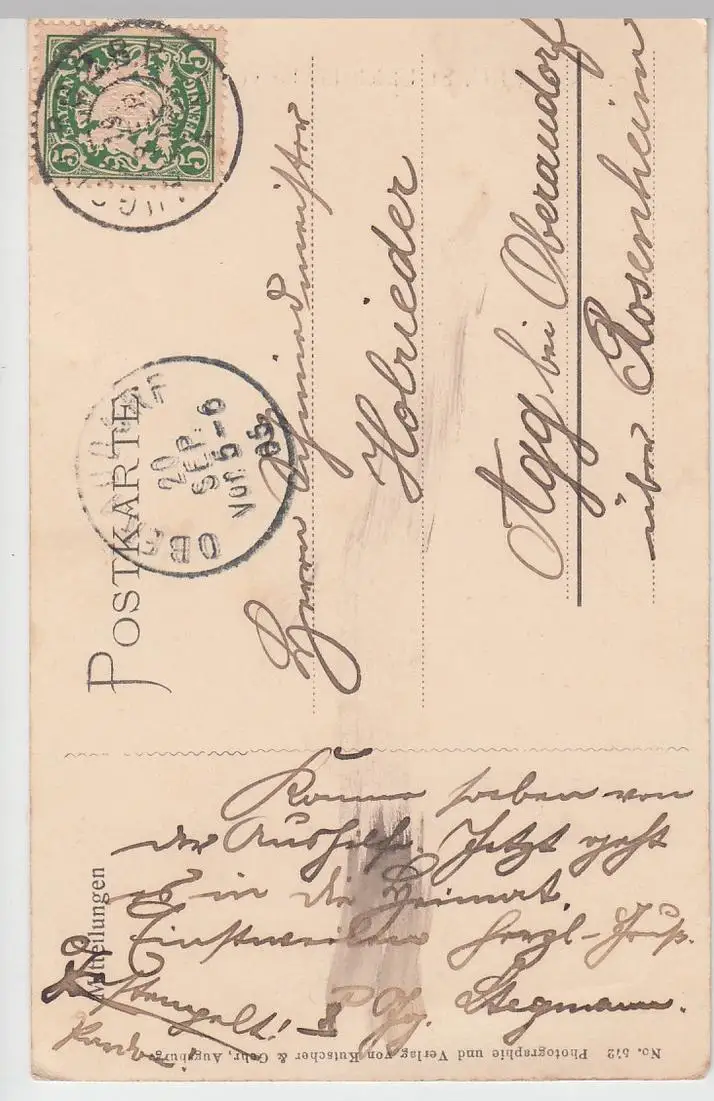 POSTKARTE
BAYERN
5 PFENNIG 5
AUGSBURG
OBERAUDORF
20
SEP.
Vor. 5-6
05
Herrn Schmiedmeister
Holrieder
Agg bei Oberaudorf
über Rosenheim
Mitteilungen
Komme soeben von
der Aushilfe. Jetzt geht
es in die Heimat.
Einstweilen herzl. Gruß.
Stegmann.
No. 572 Photographie und Verlag von Kutscher & Gehr, Augsburg.